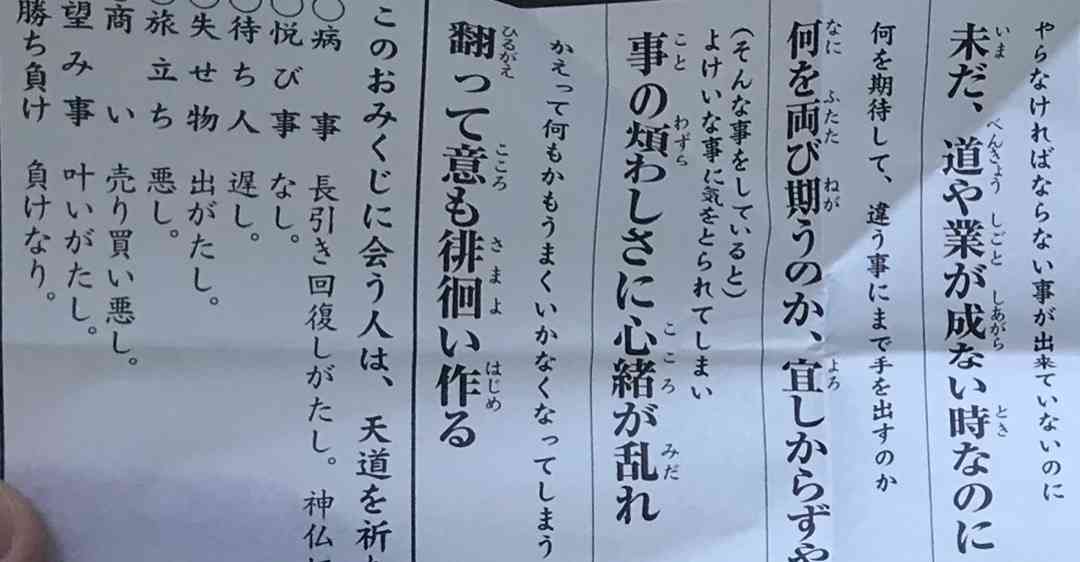 やらなければならない事が出来ていないのに
未だ、道や業が成ない時なのに
何を期待して、違う事にまで手を出すのか
何を両び期うのか、宜しからずや
(そんな事をしていると)
よけいな事に気をとられてしまい
事の煩わしさに心緒が乱れ
かえって何もかもうまくいかなくなってしまう
翻って意も徘徊い作る
このおみくじに会う人は、天道を祈
○病事 長引き回復しがたし。神仏に
○悦び事 なし。
○待ち人 遅し。
○失せ物 出がたし。
○旅立ち 悪し。
商い 売り買い悪し。
望み事 叶いがたし。
勝ち負け 負けなり。